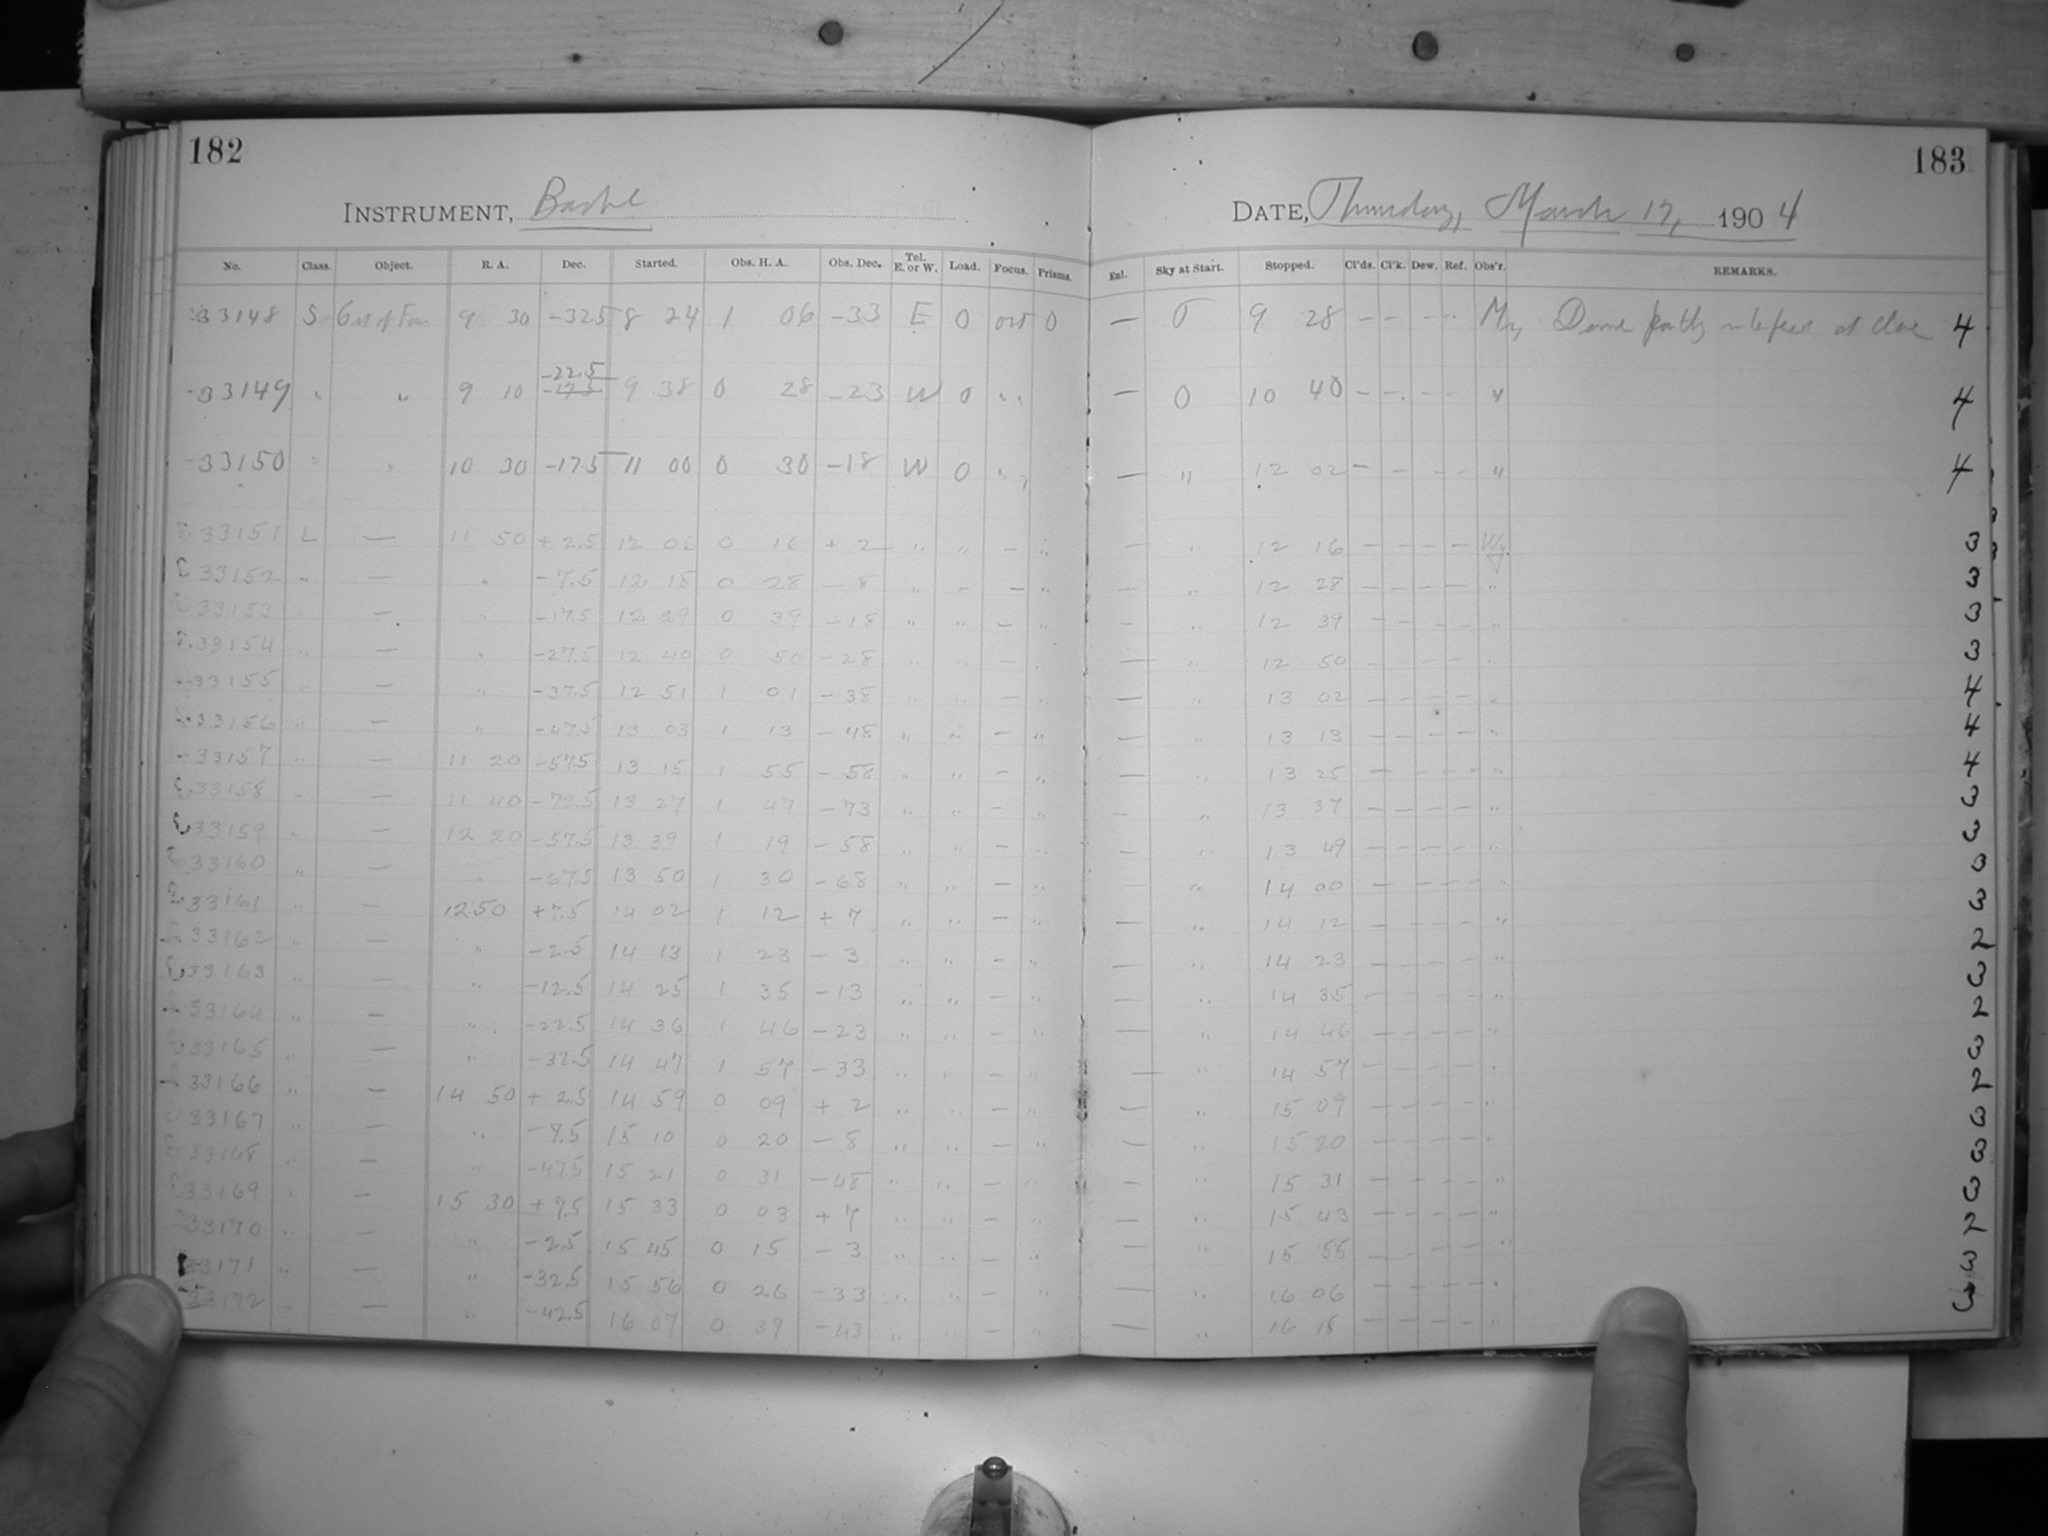 182
183
INSTRUMENT, Bache
DATE, Thursday, March 17, 1904
No. Class. Object. R. A. Dec. Started. Obs. H. A. Obs. Dec. Tel. E. or W. Load. Focus. Prisms. Enl. Sky at Start. Stopped. Cl'ds. Cl'k. Dew. Ref. Obs'r. REMARKS.
33148 S 9 30 -32.5 8 24 1 06 -33 E 0 0 — 0 9 28 — — — — Dome partly at close 4
33149 " " 9 10 -22.5 -17.5 9 38 0 28 -23 W 0 " — 0 10 40 — — — — " 4
33150 " " 10 30 -17.5 11 00 0 30 -18 W 0 " — " 12 02 — — — — " 4
33151 L — 11 50 +2.5 12 06 0 16 +2 " " — " — " 12 16 — — — — Wy 3
33152 " — " -7.5 12 18 0 28 -8 " " — " — " 12 28 — — — — " 3
33153 " — " -17.5 12 29 0 39 -18 " " — " — " 12 39 — — — — " 3
33154 " — " -27.5 12 40 0 50 -28 " " — " — " 12 50 — — — — " 3
33155 " — " -37.5 12 51 1 01 -38 " " — " — " 13 02 — — — — " 4
33156 " — " -47.5 13 03 1 13 -48 " " — " — " 13 13 — — — — " 4
33157 " — 11 20 -57.5 13 15 1 55 -58 " " — " — " 13 25 — — — — " 4
33158 " — 11 40 -72.5 13 27 1 47 -73 " " — " — " 13 37 — — — — " 3
33159 " — 12 20 -57.5 13 39 1 19 -58 " " — " — " 13 49 — — — — " 3
33160 " — " -67.5 13 50 1 30 -68 " " — " — " 14 00 — — — — " 3
33161 " — 12 50 +7.5 14 02 1 12 +7 " " — " — " 14 12 — — — — " 3
33162 " — " -2.5 14 13 1 23 -3 " " — " — " 14 23 — — — — " 2
33163 " — " -12.5 14 25 1 35 -13 " " — " — " 14 35 — — — — " 3
33164 " — " -22.5 14 36 1 46 -23 " " — " — " 14 46 — — — — " 2
33165 " — " -32.5 14 47 1 57 -33 " " — " — " 14 57 — — — — " 3
33166 " — 14 50 +2.5 14 59 0 09 +2 " " — " — " 15 09 — — — — " 2
33167 " — " -7.5 15 10 0 20 -8 " " — " — " 15 20 — — — — " 3
33168 " — " -47.5 15 21 0 31 -48 " " — " — " 15 31 — — — — " 3
33169 " — 15 30 +7.5 15 33 0 03 +7 " " — " — " 15 43 — — — — " 3
33170 " — " -2.5 15 45 0 15 -3 " " — " — " 15 55 — — — — " 2
33171 " — " -32.5 15 56 0 26 -33 " " — " — " 16 06 — — — — " 3
33172 " — " -42.5 16 07 0 39 -43 " " — " — " 16 18 — — — — " 3